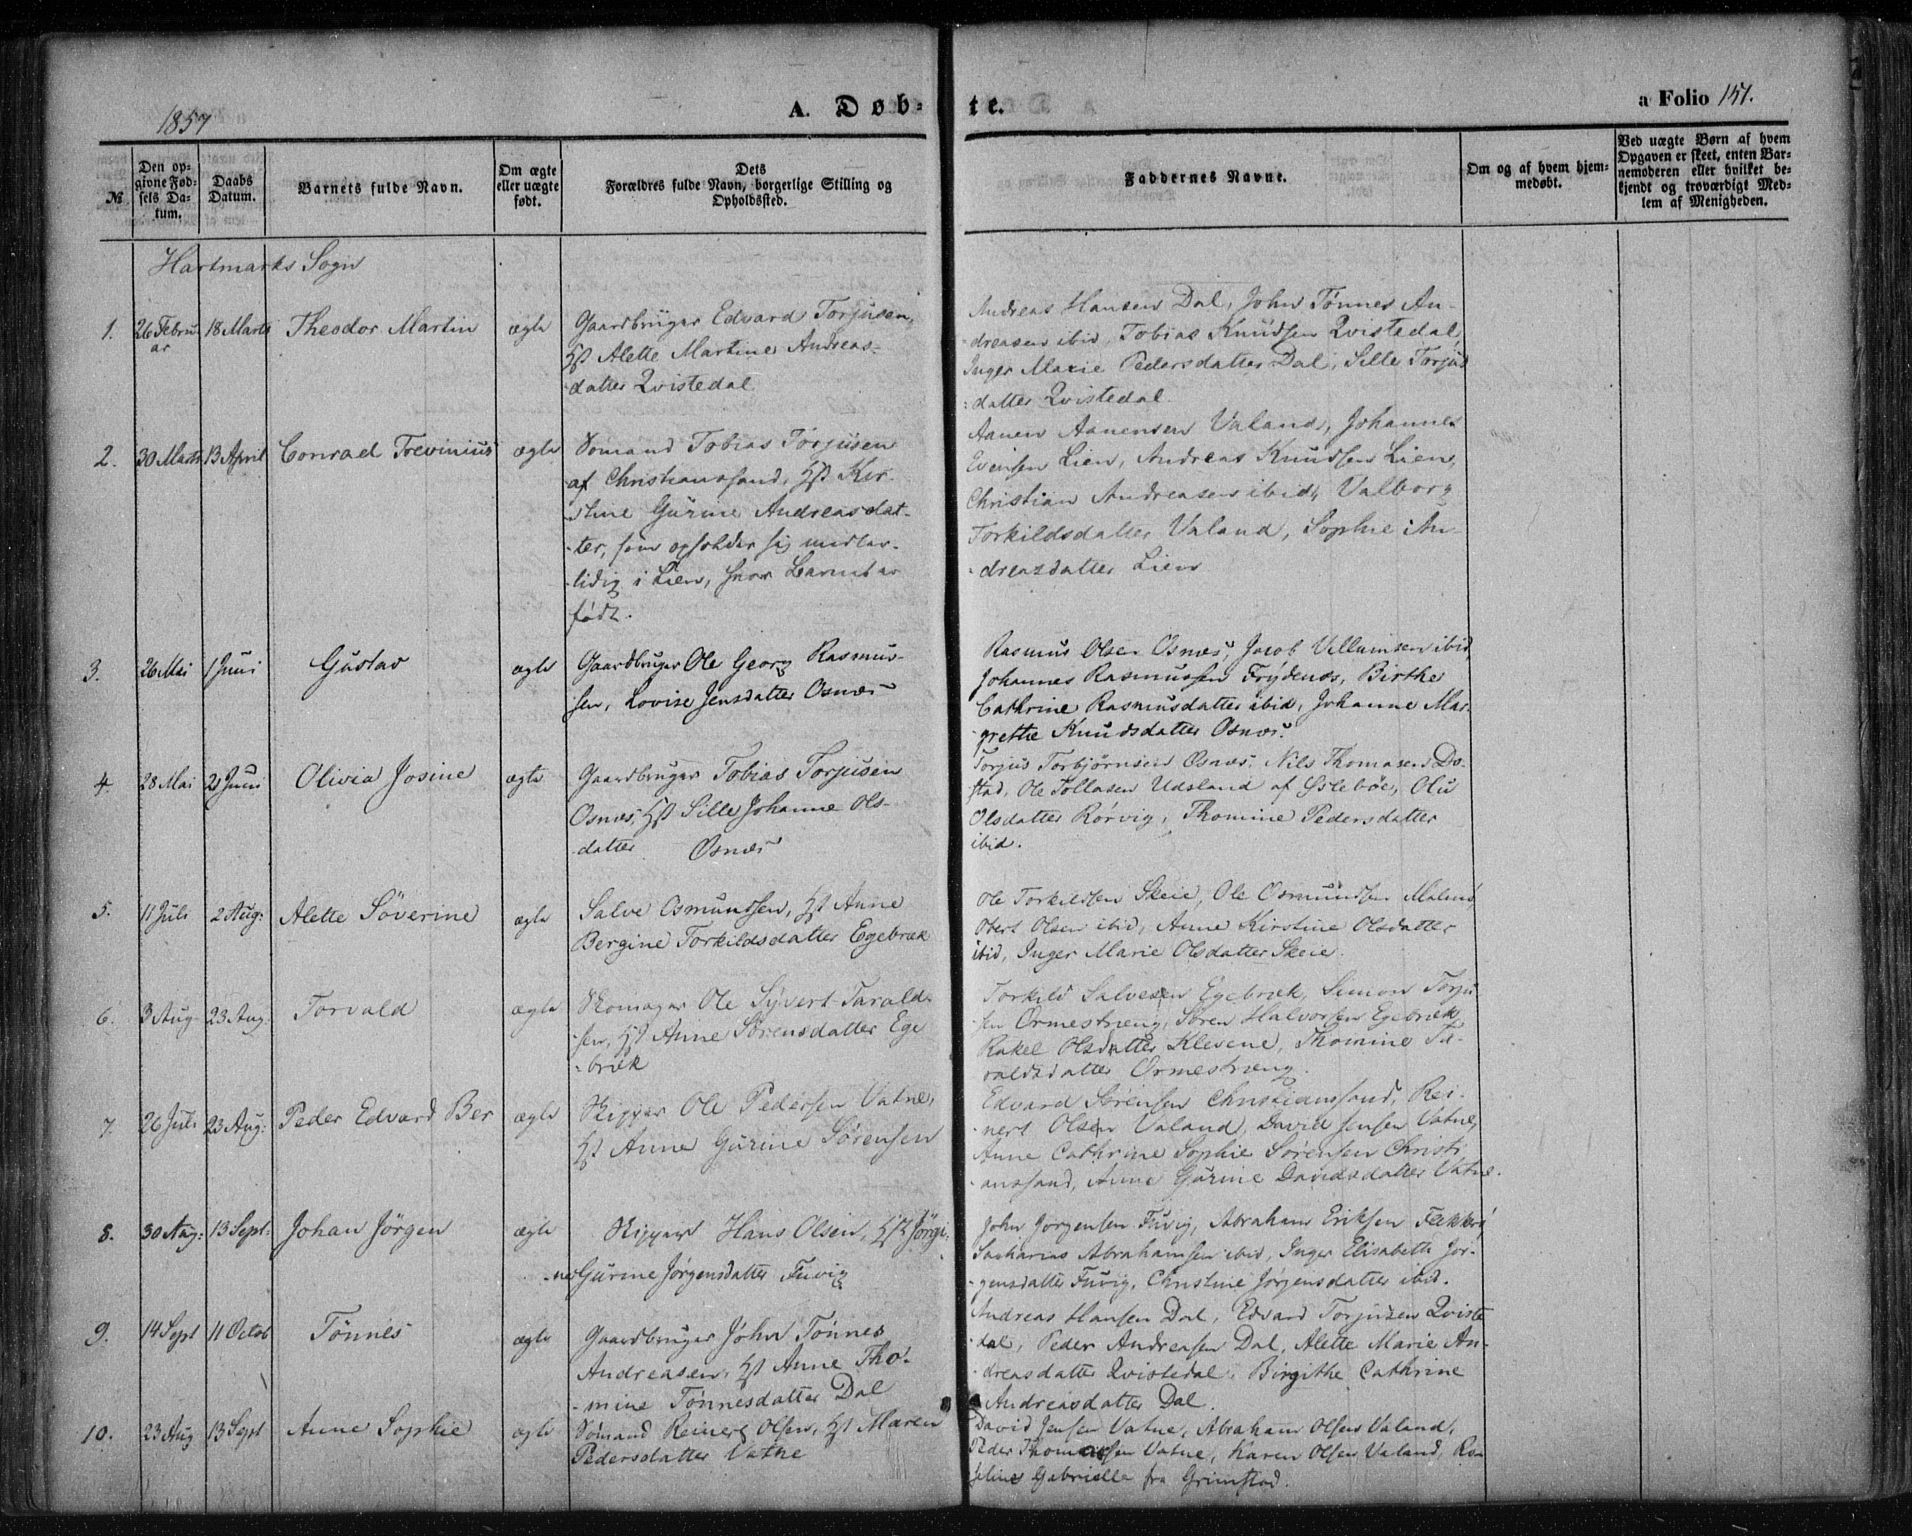 1857
A. Døb-
te.
a Folio 151.
№
Den op-
givne Fød-
sels Da-
tum.
Daabs
Datum.
Barnets fulde Navn.
Om ægte
eller uægte
født.
Dets
Forældres fulde Navn, borgerlige Stilling og
Opholdssted.
Faddernes Navne.
Om og af hvem hjem-
medøbt.
Ved uægte Børn af hvem
Opgaven er skeet, enten Bar-
nemoderen eller hvilket be-
kjendt og troværdigt Med-
lem af Menigheden.
Hartmarks Sogn
1. 26 Febru-
ar
18 Marts
Theodor Martin
ægte
Gaardbruger Edvard Torjusen,
Hst Alette Martine Andreas-
datter Qvistedal
Andreas Hansen Dal, John Tønnes An-
dreasen ibid, Tobias Knudsen Qvistedal,
Inger Marie Pedersdatter Dal, Sille Torjus
datter Qvistedal.
2. 30 Marts 13 April Conrad Trevinius ægte
Sømand Tobias Torjusen
af Christianssand, Hst Kir-
stine Gurine Andreasdat-
ter, som opholder sig midler-
tidig i Lien, hvor Barnet er
født.
Aanen Aanensen Valand, Johannes
Evensen Lien, Andreas Knudsen Lien,
Christian Andreasen ibid, Valborg
Torkildsdatter Valand, Sophie An-
dreasdatter Lien
3. 26 Mai 1 Juni Gustav ægte
Gaardbruger Ole Georg Rasmus-
sen, Lovise Jensdatter Osnæs
Rasmus Olsen Osnæs, Jacob Villumsen ibid,
Johannes Rasmussen Frydenæs, Birthe
Cathrine Rasmusdatter ibid, Johanne Mar-
grethe Knudsdatter Osnæs.
4. 28 Mai 21 Juni Olivia Josine ægte
Gaardbruger Tobias Torjusen
Osnæs, Hst Sille Johanne Ols-
datter Osnæs
Torjus Torbjørnsen Osnæs, Nils Thomasen Do-
stad, Ole Tollasen Udsland af Øslebøe, Olu
Olsdatter Rørvig, Thomine Pedersdatter
ibid.
5. 11 Juli 2 Aug: Alette Söverine ægte
Salve Osmundsen, Hst Anne
Bergine Torkildsdatter Egebræk
Ole Torkildsen Skeie, Ole Osmundsen
Obert Olsen ibid, Anne Kirstine Olsdatter
ibid, Inger Marie Olsdatter Skeie.
6. 3 Aug. 23 Aug. Torvald ægte
Skomager Ole Syvert Tarald-
sen, Hst Anne Sörensdatter Ege
bræk
Torkild Salvesen Egebræk, Simon Torju-
sen Ormestræng, Søren Halvorsen Egebræk,
Rakel Olsdatter Klevene, Thomine Ta-
raldsdatter Ormestræng.
7. 26 Juli 23 Aug: Peder Edvard Ber ægte
Skipper Ole Pedersen Vatne,
Hst Anne Gurine Sörensen
Edvard Sörensen Christianssand, Rei-
nert Olsen Valand, David Jensen Vatne,
Anne Cathrine Sophie Sörensen Christi
anssand, Anne Gurine Davidsdatter Vatne.
8. 30 Aug: 13 Sept. Johan Jörgen ægte
Skipper Hans Olsen, Hst Jörgi-
ne Gurine Jørgensdatter Tuvig
John Jørgensen Tuvig, Abraham Eriksen
Sacharias Abrahamsen ibid, Inger Elisabeth Jør-
gensdatter Tuvig, Christine Jørgensdatter ibid.
9. 14 Sept 11 Octob Tönnes ægte
Gaardbruger John Tönnes
Andreasen, Hst Anne Tho-
mine Tönnesdatter Dal
Andreas Hansen Dal, Edvard Torjusen Qviste
dal, Peder Andreasen Dal, Alette Marie An-
dreasdatter Qvistedal, Birgithe Cathrine
Andreasdatter Dal.
10. 23 Aug 13 Sept Anne Sophie ægte
Sømand Reinert Olsen, Hst Maren
Pedersdatter Vatne
David Jensen Vatne, Abraham Olsen Valand,
Peder Thomassen Vatne, Karen Olsen Valand, Ro-
seline Gabrielle fra Grimstad.